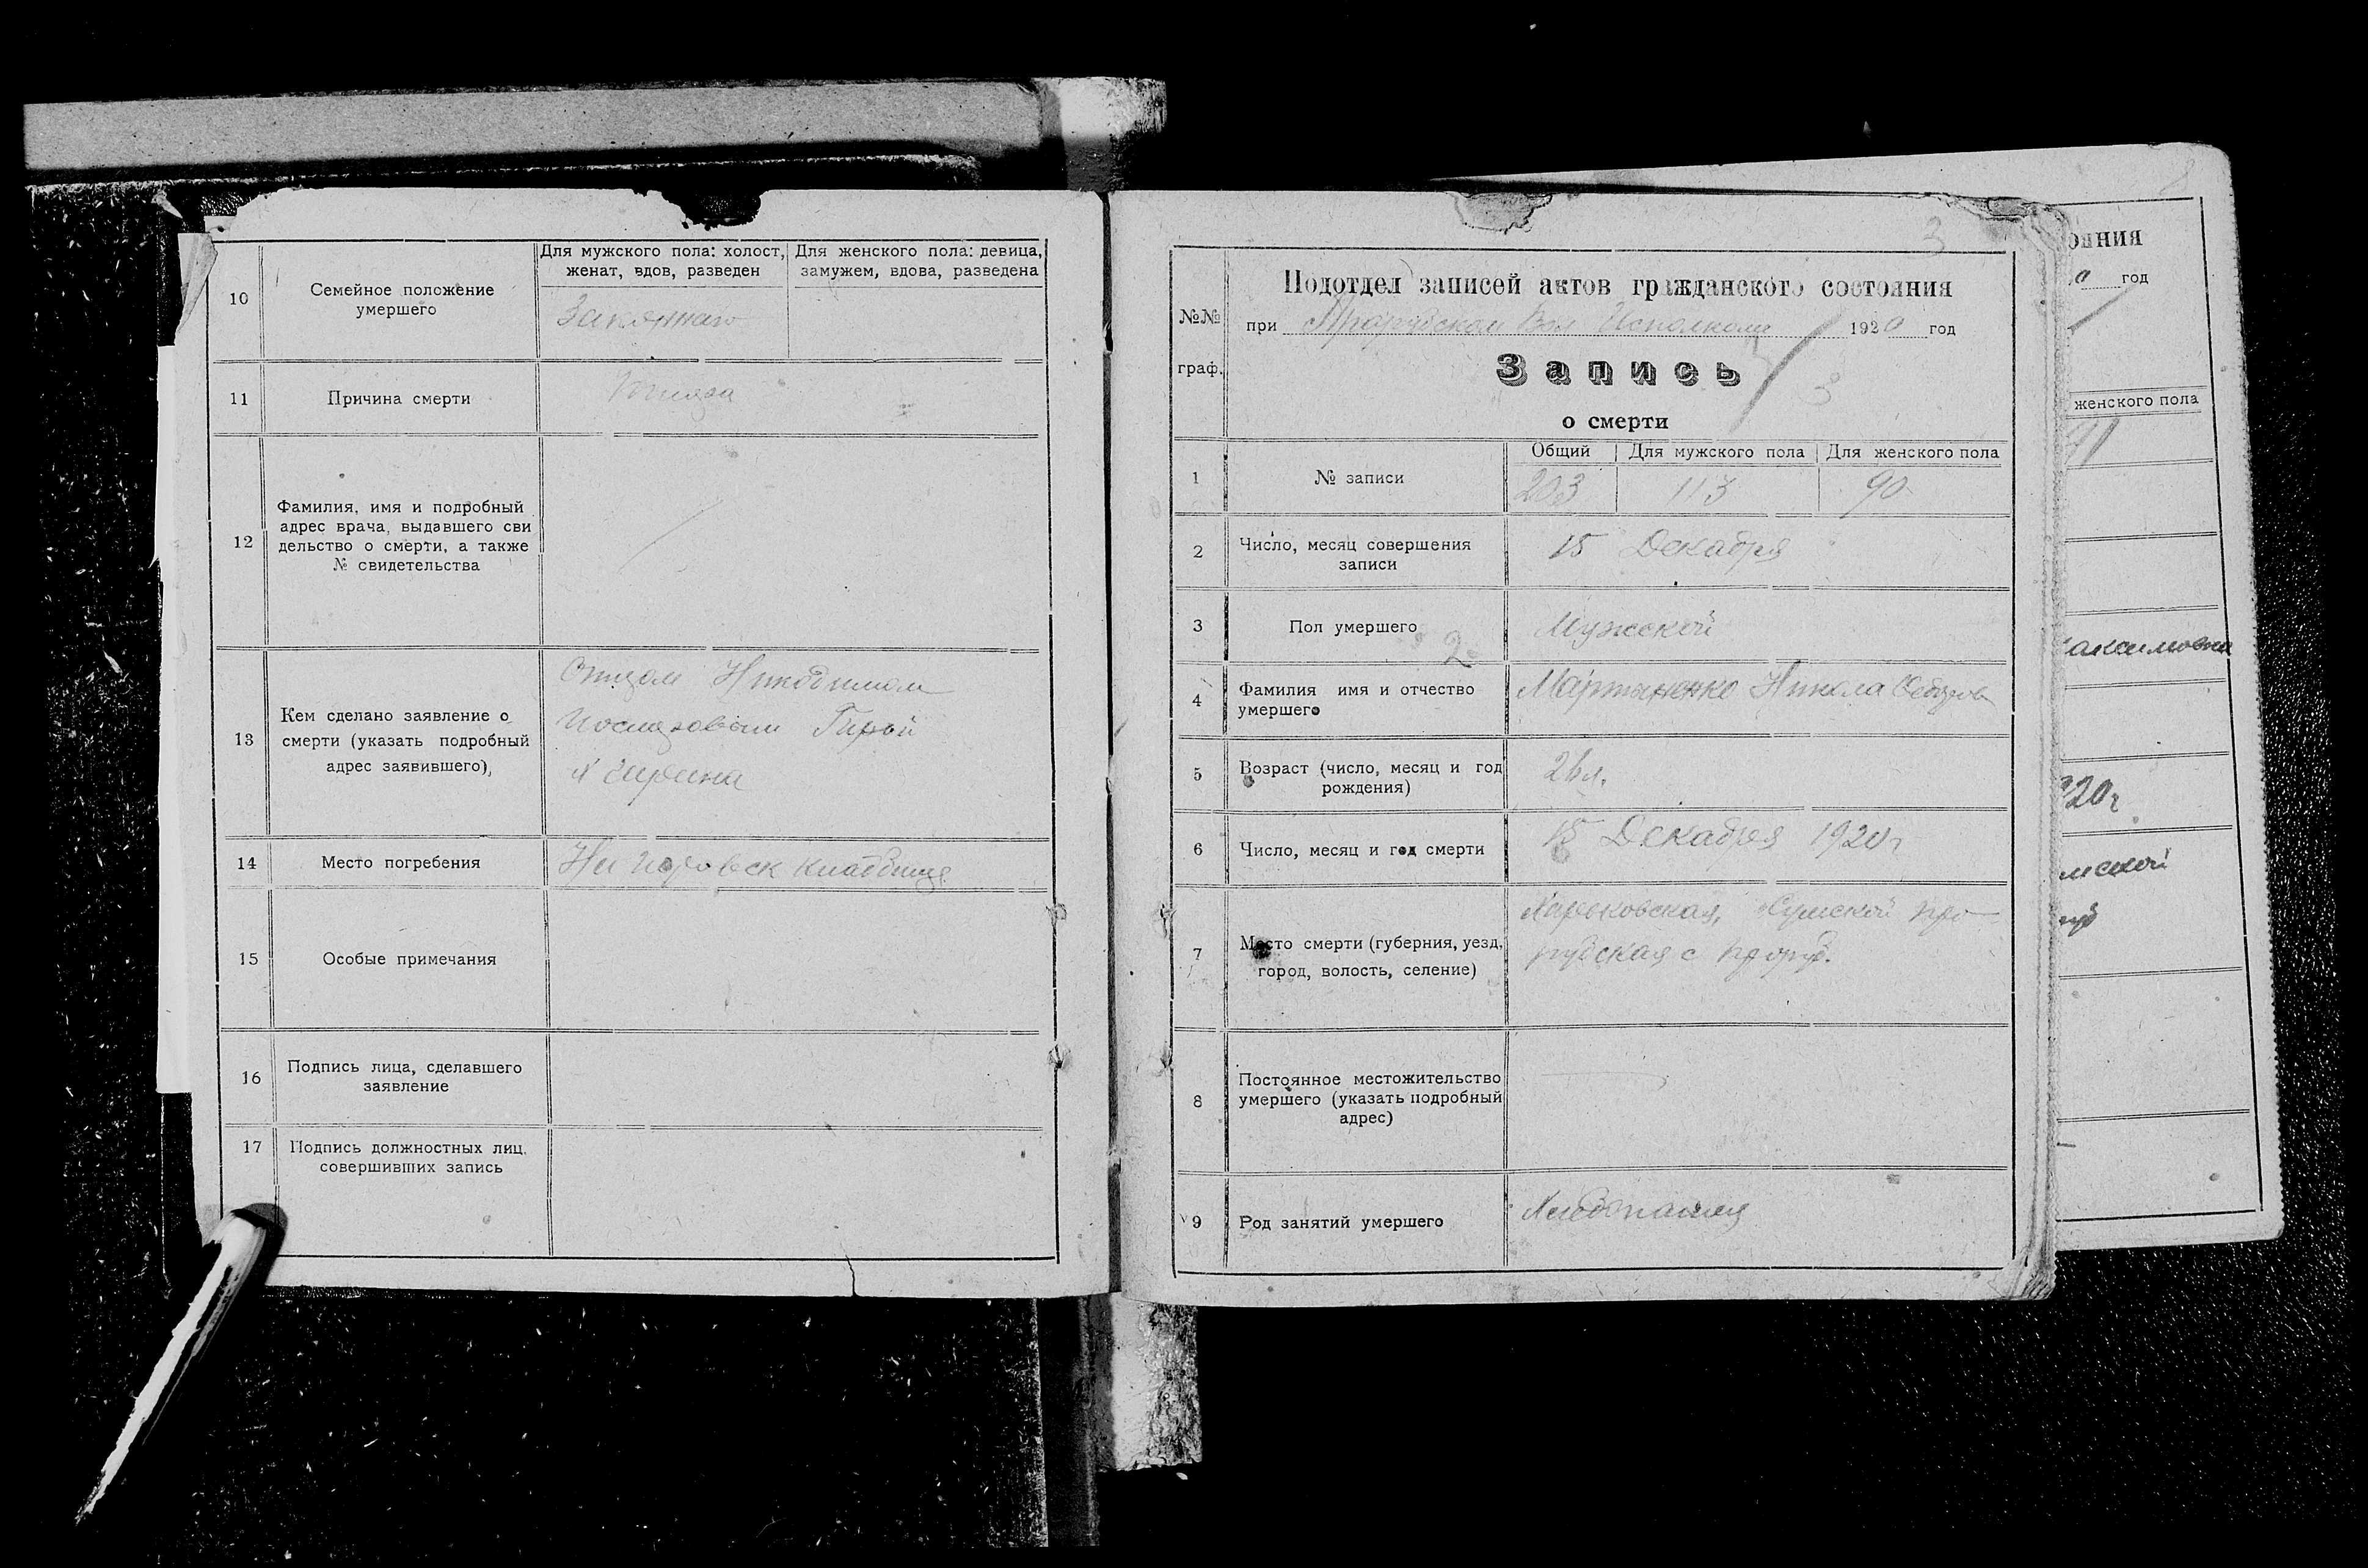 10
Семейное положение
умершего
Для мужского пола: холост,
женат, вдов, разведен
Для женского пола: девица,
замужем, вдова, разведена
Законнаго
11
Причина смерти
12
Фамилия, имя и подробный
адрес врача, выдавшего сви
дельство о смерти, а также
№ свидетельства
13
Кем сделано заявление о
смерти (указать подробный
адрес заявившего),
Отцом
14
Место погребения
15
Особые примечания
16
Подпись лица, сделавшего
заявление
17
Подпись должностных лиц,
совершивших запись
3
№№
граф.
Подотдел записей актов гражданского состояния
при Вол Исполкоме 1920 год
Запись
3
о смерти
1
№ записи
Общий
Для мужского пола
Для женского пола
203
113
90
2
Число, месяц совершения
записи
15 Декабря
3
Пол умершего
2
Мужской
4
Фамилия имя и отчество
умершего
Мартыненко Никола
5
Возраст (число, месяц и год
рождения)
6
Число, месяц и год смерти
15 Декабря 1920 г
7
Место смерти (губерния, уезд,
город, волость, селение)
Харьковская, Сумской
8
Постоянное местожительство
умершего (указать подробный
адрес)
9
Род занятий умершего
Хлебопашец
8
ояния
0 год
женского пола
91
аксимовна
920г
мской